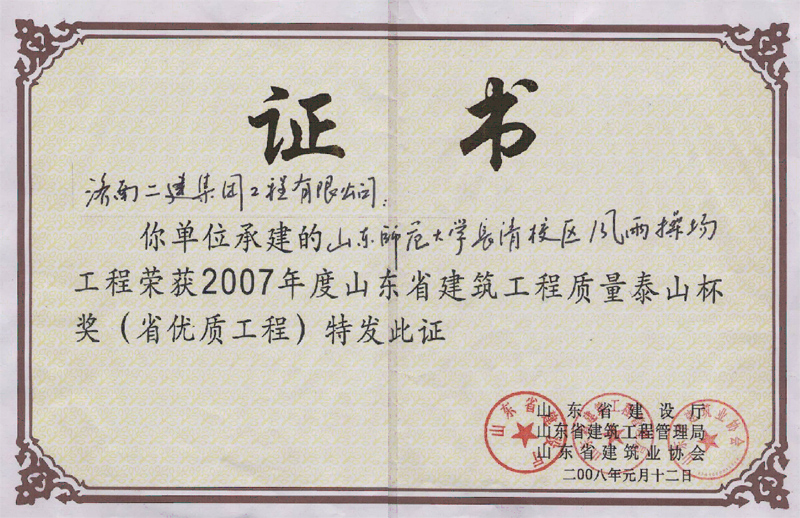 证书
济南二建集团工程有限公司:
你单位承建的山东师范大学长清校区风雨操场
工程荣获2007年度山东省建筑工程质量泰山杯
奖（省优质工程）特发此证
山东省建设厅
山东省建筑工程管理局
山东省建筑业协会
二00八年元月十二日
山东省建设厅